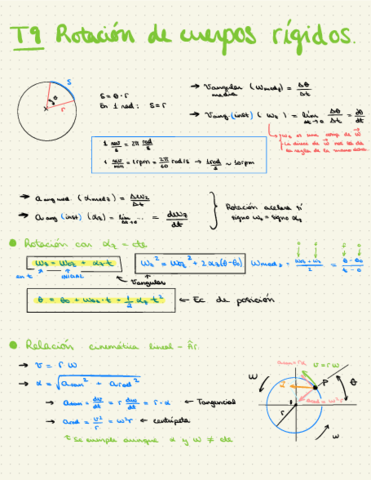 T9 Rotación de cuerpos rígidos.
S = θ · r
En 1 rad: S = r
→ Vangular media (Wmedz) = Δθ/Δt
→ Vang. (inst) (Wz) = lim Δt→0 Δθ/Δt = dθ/dt
1 rev/s = 2π rad/s
1 rev/min = 1 rpm = 2π/60 rad/s → 1 rad/s ≈ 10 rpm
→ a ang med. (αmedz) = ΔWz/Δt
→ a ang (inst) (αz) = lim ... = dWz/dt
Rotación acelera si signo wz = signo αz
Rotación con αz = cte
Wz = Woz + αz t
Wz² = Woz² + 2αz(θ - θo)
Angular
θ = θo + Woz · t + 1/2 αz t²
← Ec de posición
Relación cinemática lineal
→ v = r w
→ α = √(a tan² + a rad²)
→ a tan = dv/dt = r dw/dt = r · α ← Tangencial
→ a rad = v²/r = w² r ← centrípeta
Se cumple aunque α y w ≠ cte
v = r w
P
θ
r
w
w